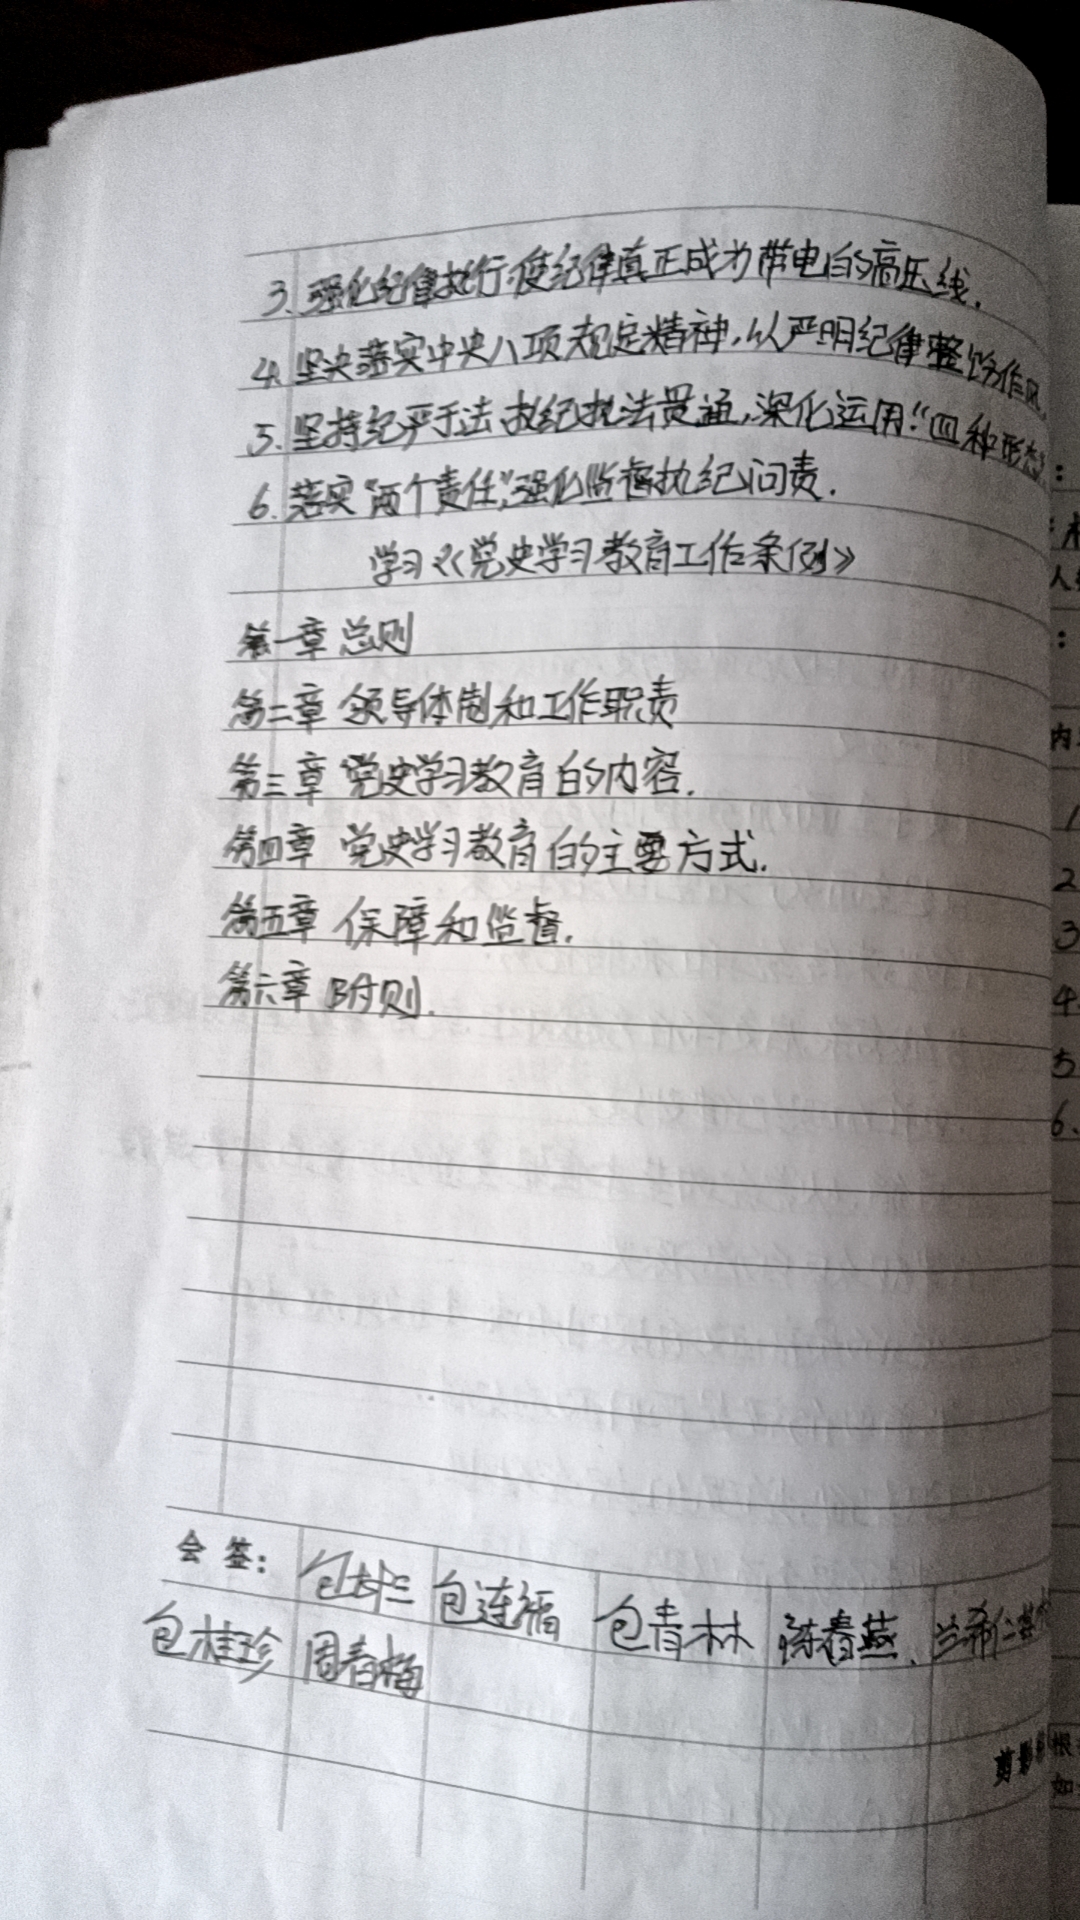 3.强化纪律执行,使纪律真正成为带电的高压线.
4.坚决落实中央八项规定精神,以严明纪律整饬作风,
5.坚持纪严于法,执纪执法贯通,深化运用“四种形态”
6.落实“两个责任”,强化监督执纪问责.
学习《党史学习教育工作条例》
第一章 总则
第二章 领导体制和工作职责
第三章 党史学习教育的内容.
第四章 党史学习教育的主要方式.
第五章 保障和监督.
第六章 附则.
会 签:
包连福
包青林
陈春燕.
包桂珍
周春梅
内
1
2
3
4
5
6.
根
如